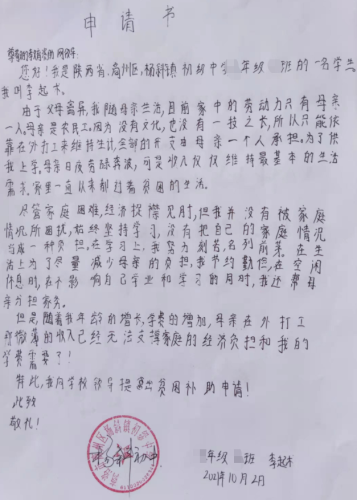 申请书
尊敬的 领导:
您好!我是陕西省、商州区,杨斜镇初初中 年级 班的一名学生
我叫李起
由于父母离异,我随母亲生活,目前家中的劳动力只有母亲
一人。母亲是农民工,因为没有文化,也没有一技之长,所以只能依
靠在外打工来维持生计,全部的开支由母亲一个人承担。为了供
我上学,母亲日夜劳碌奔波,可是收入仅仅维持最基本的生活
需求,家里一直以来都过着贫困的生活。
尽管家庭困难,经济捉襟见肘,但我并没有被家庭
情况所困扰,始终坚持学习,没有把自己的家庭情况
当成一种负担,在学习上,我努力刻苦,名列前茅。在生
活上为了尽量减少母亲的负担,我节约勤俭,在空闲
休息时,在不影响自己学业和学习的同时,我还帮母
亲分担家务。
但是,随着我年龄的增长,学费的增加,母亲在外打工
所微薄的收入已经无法支撑家庭的经济负担和我的
学费需要?!
特此,我向学校领导提出贫困补助申请!
此致
敬礼!
初中 年级 班 李起
2021年10月2日